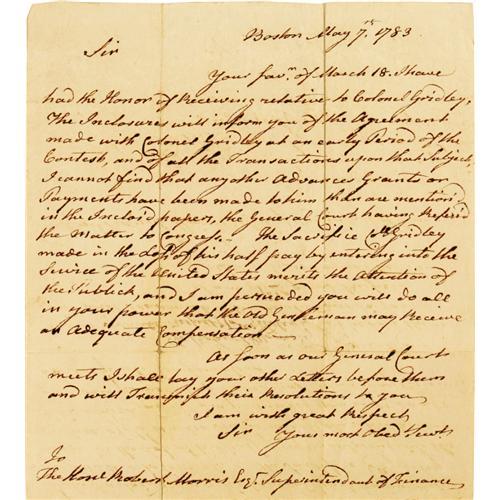 Boston May 7th. 1783
Sir
Your favr. of March 18. I have
had the Honor of Receiving relative to Colonel Gridley,
The Inclosures will inform you of the Agreement
made with Colonel Gridley at an early Period of the
Contest, and of all the Transactions upon that Subject,
I cannot find that any other Advances Grants or
Payments have been made to him than are mention'd
in the Inclosd papers, the General Court having Referrd
the Matter to Congress.— The Sacrifice Colo. Gridley
made in the loss of his half pay by entering into the
Service of the United States merits the Attention of
the Publick, and I am persuaded you will do all
in your power that the Old Gentleman may Receive
an Adequate Compensation—
As soon as our General Court
meets I shall lay your other Letters before them
and will Transmit their Resolutions to you
I am with great Respect
Sir Yours most Obed Servt.
To
The Honl Robert Morris Esqr. Superintendant of Finance